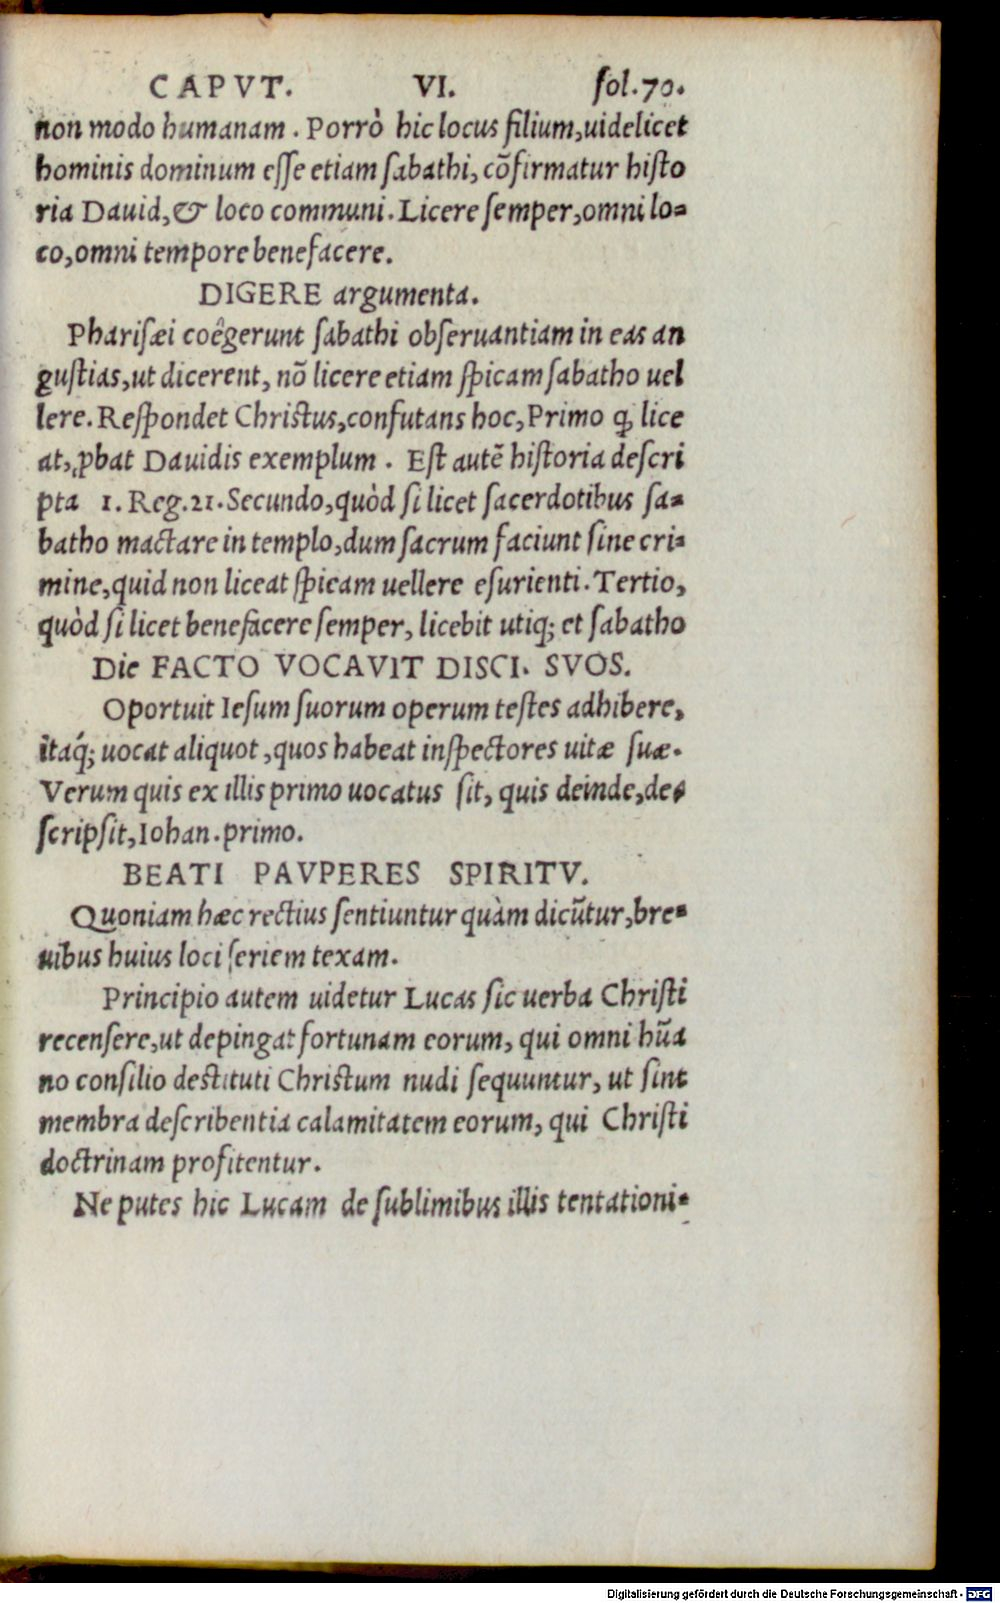 CAPVT. VI. fol.70.
non modo humanam. Porrò hic locus filium,uidelicet
hominis dominum eſſe etiam ſabathi, cõfirmatur hiſto
ria Dauid,& loco communi. Licere ſemper,omni lo-
co,omni tempore benefacere.
DIGERE argumenta.
Phariſæi coêgerunt ſabathi obſeruantiam in eas an
guſtias,ut dicerent, nõ licere etiam ſpicam ſabatho uel
lere. Reſpondet Chriſtus,confutans hoc, Primo ꝙ lice
at, ꝓbat Dauidis exemplum. Eſt autẽ hiſtoria deſcri
pta 1. Reg.21. Secundo,quòd ſi licet ſacerdotibus ſa-
batho mactare in templo,dum ſacrum faciunt ſine cri-
mine,quid non liceat ſpicam uellere eſurienti. Tertio,
quòd ſi licet benefacere ſemper, licebit utiq; et ſabatho
Die FACTO VOCAVIT DISCI. SVOS.
Oportuit Ieſum ſuorum operum teſtes adhibere,
itaq́; uocat aliquot,quos habeat inſpectores uitæ ſuæ.
Verum quis ex illis primo uocatus ſit, quis deinde,de-
ſcripſit,Iohan.primo.
BEATI PAVPERES SPIRITV.
Quoniam hæc rectius ſentiuntur quàm dicũtur,bre-
uibus huius loci ſeriem texam.
Principio autem uidetur Lucas ſic uerba Chriſti
recenſere,ut depingat fortunam eorum, qui omni hũa
no conſilio deſtituti Chriſtum nudi ſequuntur, ut ſint
membra deſcribentia calamitatem eorum, qui Chriſti
doctrinam profitentur.
Ne putes hic Lucam de ſublimibus illis tentationi-
Digitalisierung gefördert durch die Deutsche Forschungsgemeinschaft - DFG